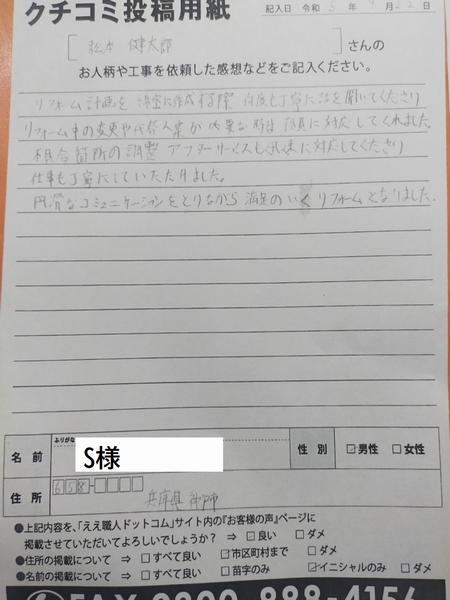 クチコミ投稿用紙
記入日 令和 5 年 9 月 22 日
[ 松本 健太郎 ] さんの
お人柄や工事を依頼した感想などをご記入ください。
リフォーム計画を 作成 際 何度も丁寧に話を聞いてくださり
リフォーム中の変更や代替案が必要な時は 対応してくれました。
具合箇所の調整 アフターサービスも 対応してくださり
仕事も丁寧にしていただけました。
円滑なコミュニケーションをとりながら 満足のいく リフォームとなりました。
ふりがな
名前 S様 性別 ☑男性 □女性
住所 658-
兵庫県 神戸市
●上記内容を、「ええ職人ドットコム」サイト内の『お客様の声』ページに
掲載させていただいてよろしいでしょうか? ⇒ ☑良い □ダメ
●住所の掲載について ⇒ □すべて良い ☑市区町村まで □ダメ
●名前の掲載について ⇒ □すべて良い □苗字のみ ☑イニシャルのみ □ダメ
FAX 0800-888-4156